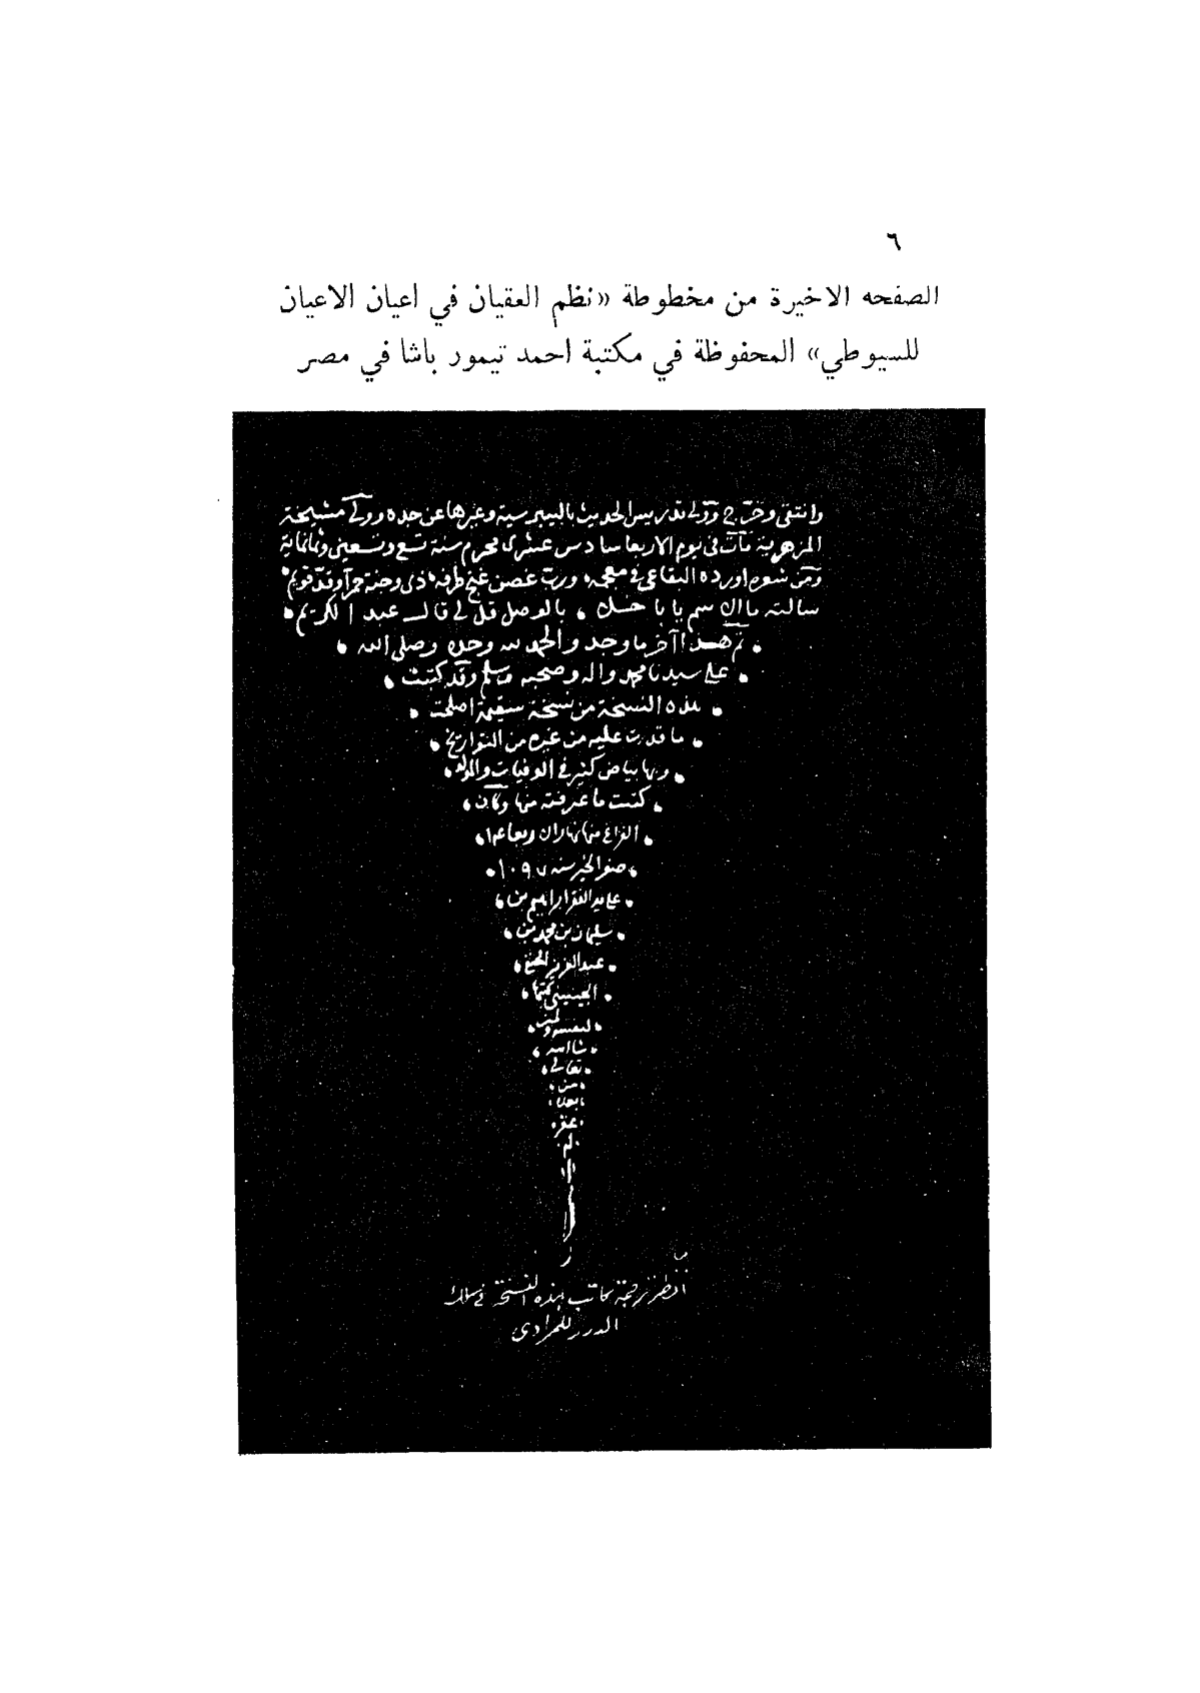 ٦
الصفحه الاخيرة من مخطوطة «نظم العقيان في اعيان الاعيان
للسيوطي» المحفوظة في مكتبة احمد تيمور باشا في مصر
وانتقى وخرّج وولي تدريس الحديث بالبيبرسية وغيرها عن جده وولي مشيخة
المزهرية مات في يوم الاربعا سادس عشرى محرم سنة تسع وتسعين وثمانماية
ومن شعره اورده البقاعي في معجمه ورب غصن غنج طرفه ذى وجنة حمرا وقد قويم
سالته ما الاسم يا باخل بالوصل قل لي قال عبد الكريم
تم هذا آخر ما وجد والحمد لله وحده وصلى الله
على سيدنا محمد واله وصحبه وسلم وقد كتبت
هذه النسخة من نسخة سقيمة اصلحت
ما قدرت عليه من غيره من التواريخ
وبها بياض كثير في الوفيات والموالد
كتبت ما عرفته منها وكان
الفراغ منها نهار
صفر الخير سنه ١٠٩٧
على يد الفقير ابراهيم بن
سليمان بن محمد بن
عبد العزيز الحنفي
الجينيني كتبها
لنفسه ولمن
شا الله
تعالى
من
بعده
غفر
له
انظر ترجمة كاتب هذه النسخة في سلك
الدرر للمرادي